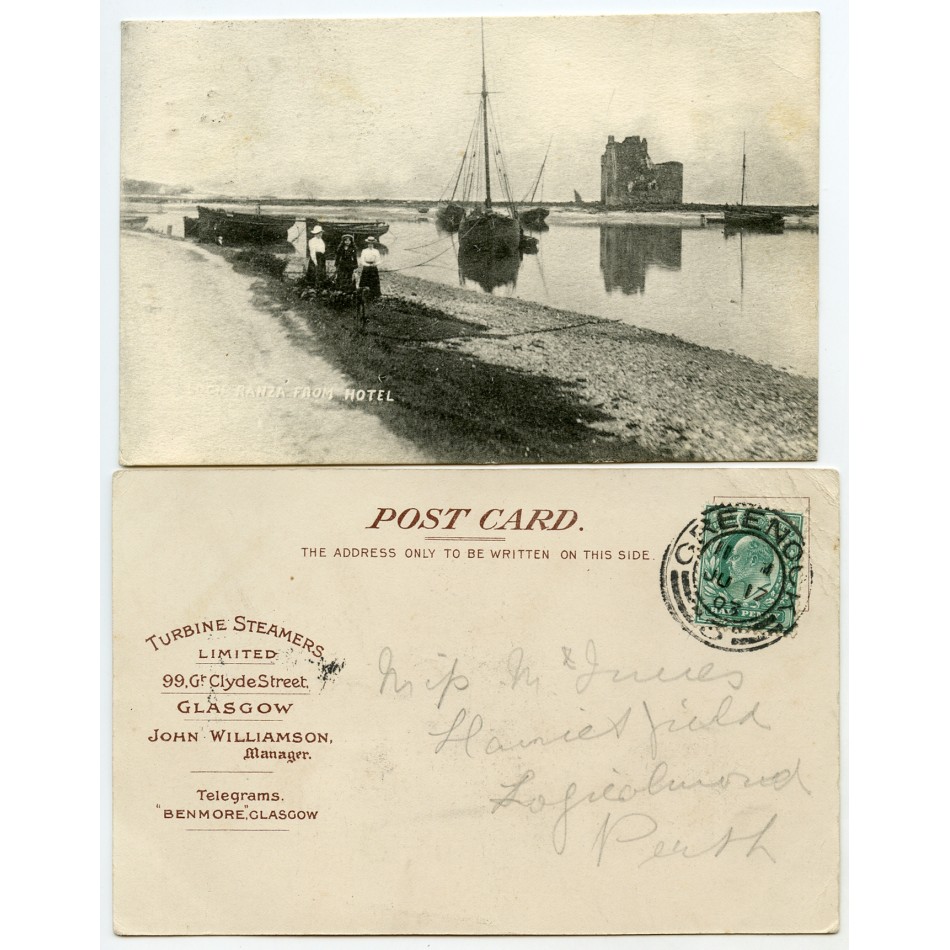 LOCH RANZA FROM HOTEL
POST CARD.
THE ADDRESS ONLY TO BE WRITTEN ON THIS SIDE.
GREENOCK
JU 17
03
HALFPENNY
TURBINE STEAMERS
LIMITED
99, Gt Clyde Street,
GLASGOW
JOHN WILLIAMSON,
Manager.
Telegrams.
"BENMORE", GLASGOW
Miss McInnes
Harrietfield
Logiealmond
Perth